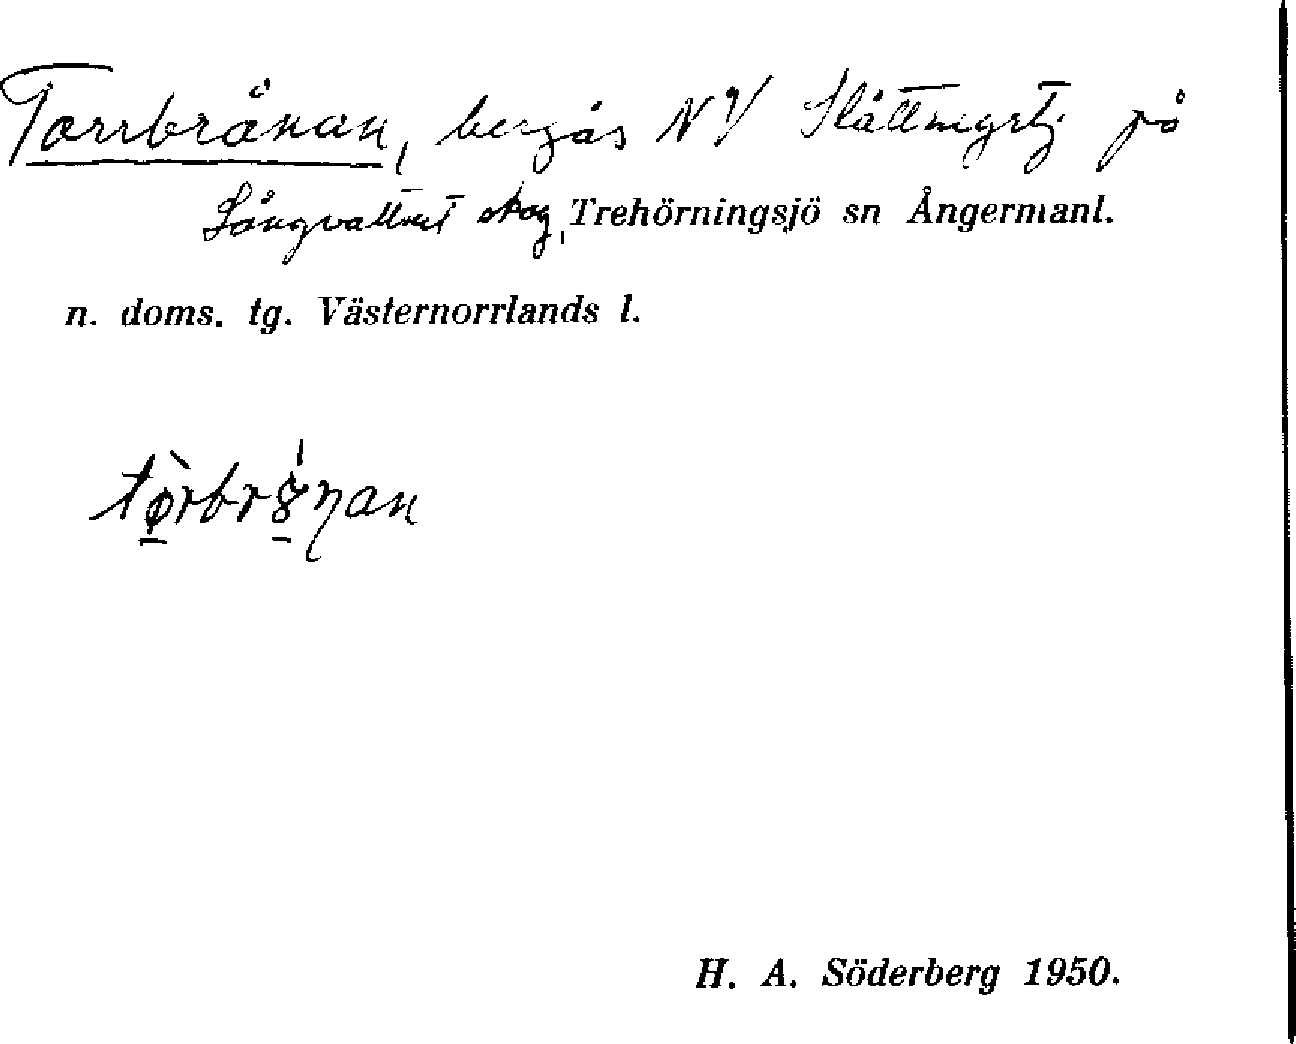 Torrbrånan, bergås N 9/ Slåttmyrtj. på
Långvattnet skog, Trehörningsjö sn Ångermanl.
n. doms. tg. Västernorrlands l.
H. A. Söderberg 1950.